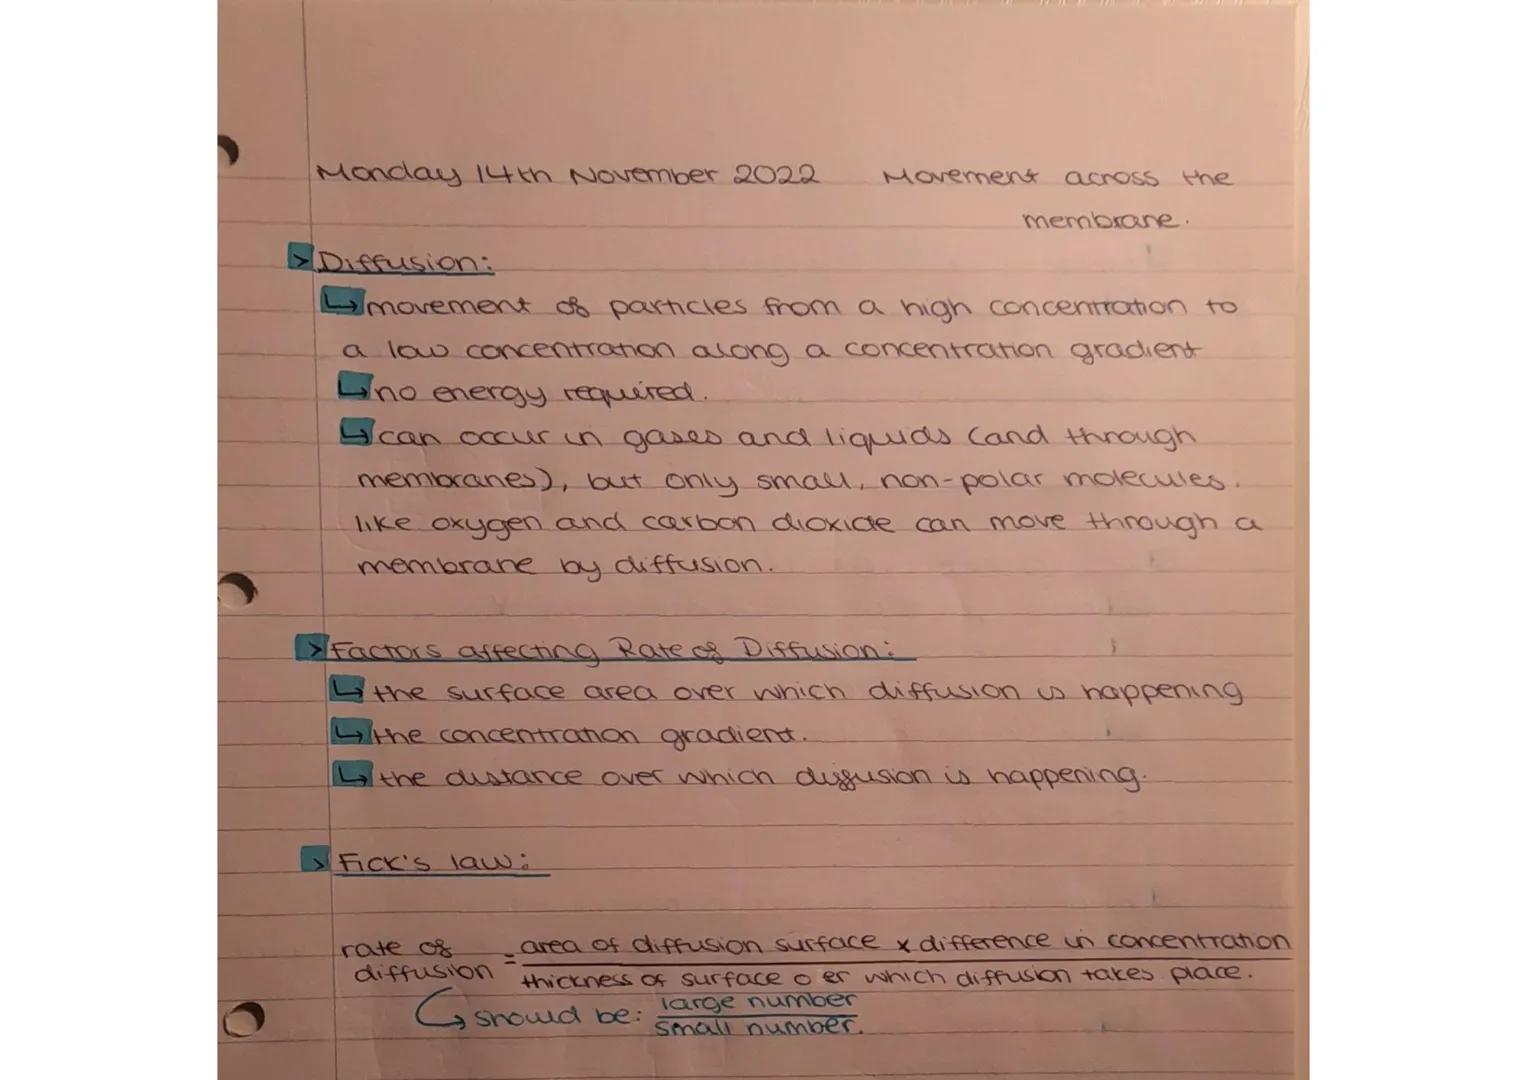 Monday 14th November 2022 Movement across the
membrane.
> Diffusion:
↳ movement of particles from a high concentration to
a low concentration along a concentration gradient
↳ no energy required.
↳ can occur in gases and liquids (and through
membranes), but only small, non-polar molecules.
like oxygen and carbon dioxide can move through a
membrane by diffusion.
> Factors affecting Rate of Diffusion:
↳ the surface area over which diffusion is happening
↳ the concentration gradient.
↳ the distance over which diffusion is happening.
> Fick's law:
rate of diffusion = area of diffusion surface x difference in concentration
thickness of surface o er which diffusion takes place.
↳ should be: large number
small number.